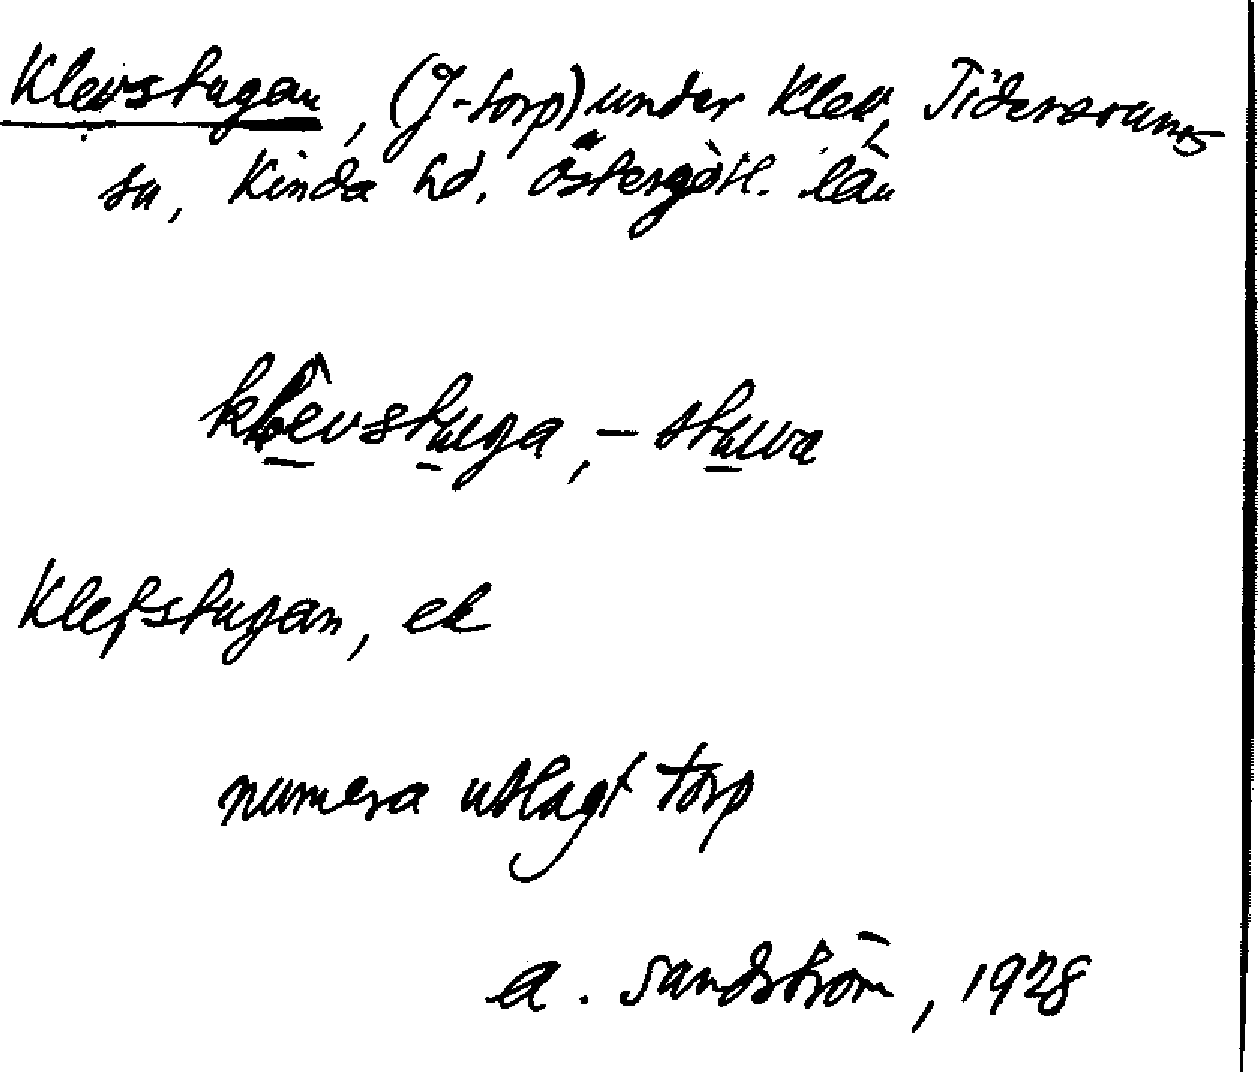 Klevstugan, (J-torp) under Klev, Tidersrums
sn, Kinda hd. Östergötl. län
klevstuga, - stuva
Klefstugan, ek
numera utlagt torp
A. Sandström, 1928